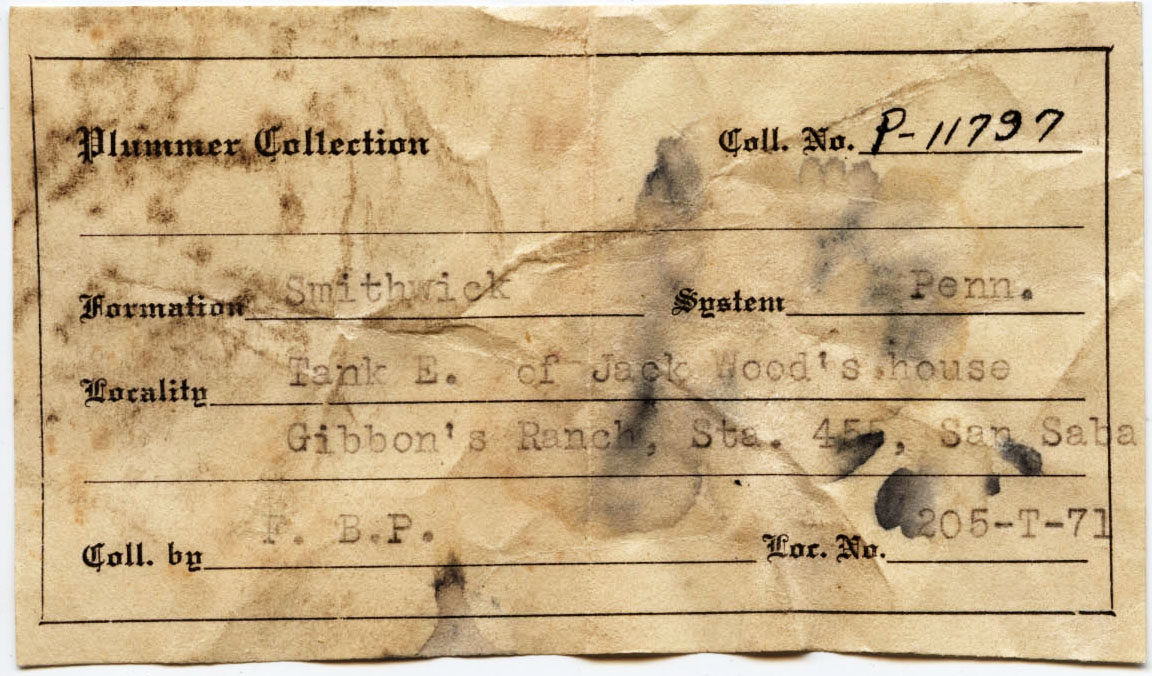 Plummer Collection Coll. No. P-11797
Formation Smithwick System Penn.
Locality Tank E. of Jack Wood's house
Gibbon's Ranch, Sta. 455, San Saba
Coll. by F. B.P. Loc. No. 205-T-71